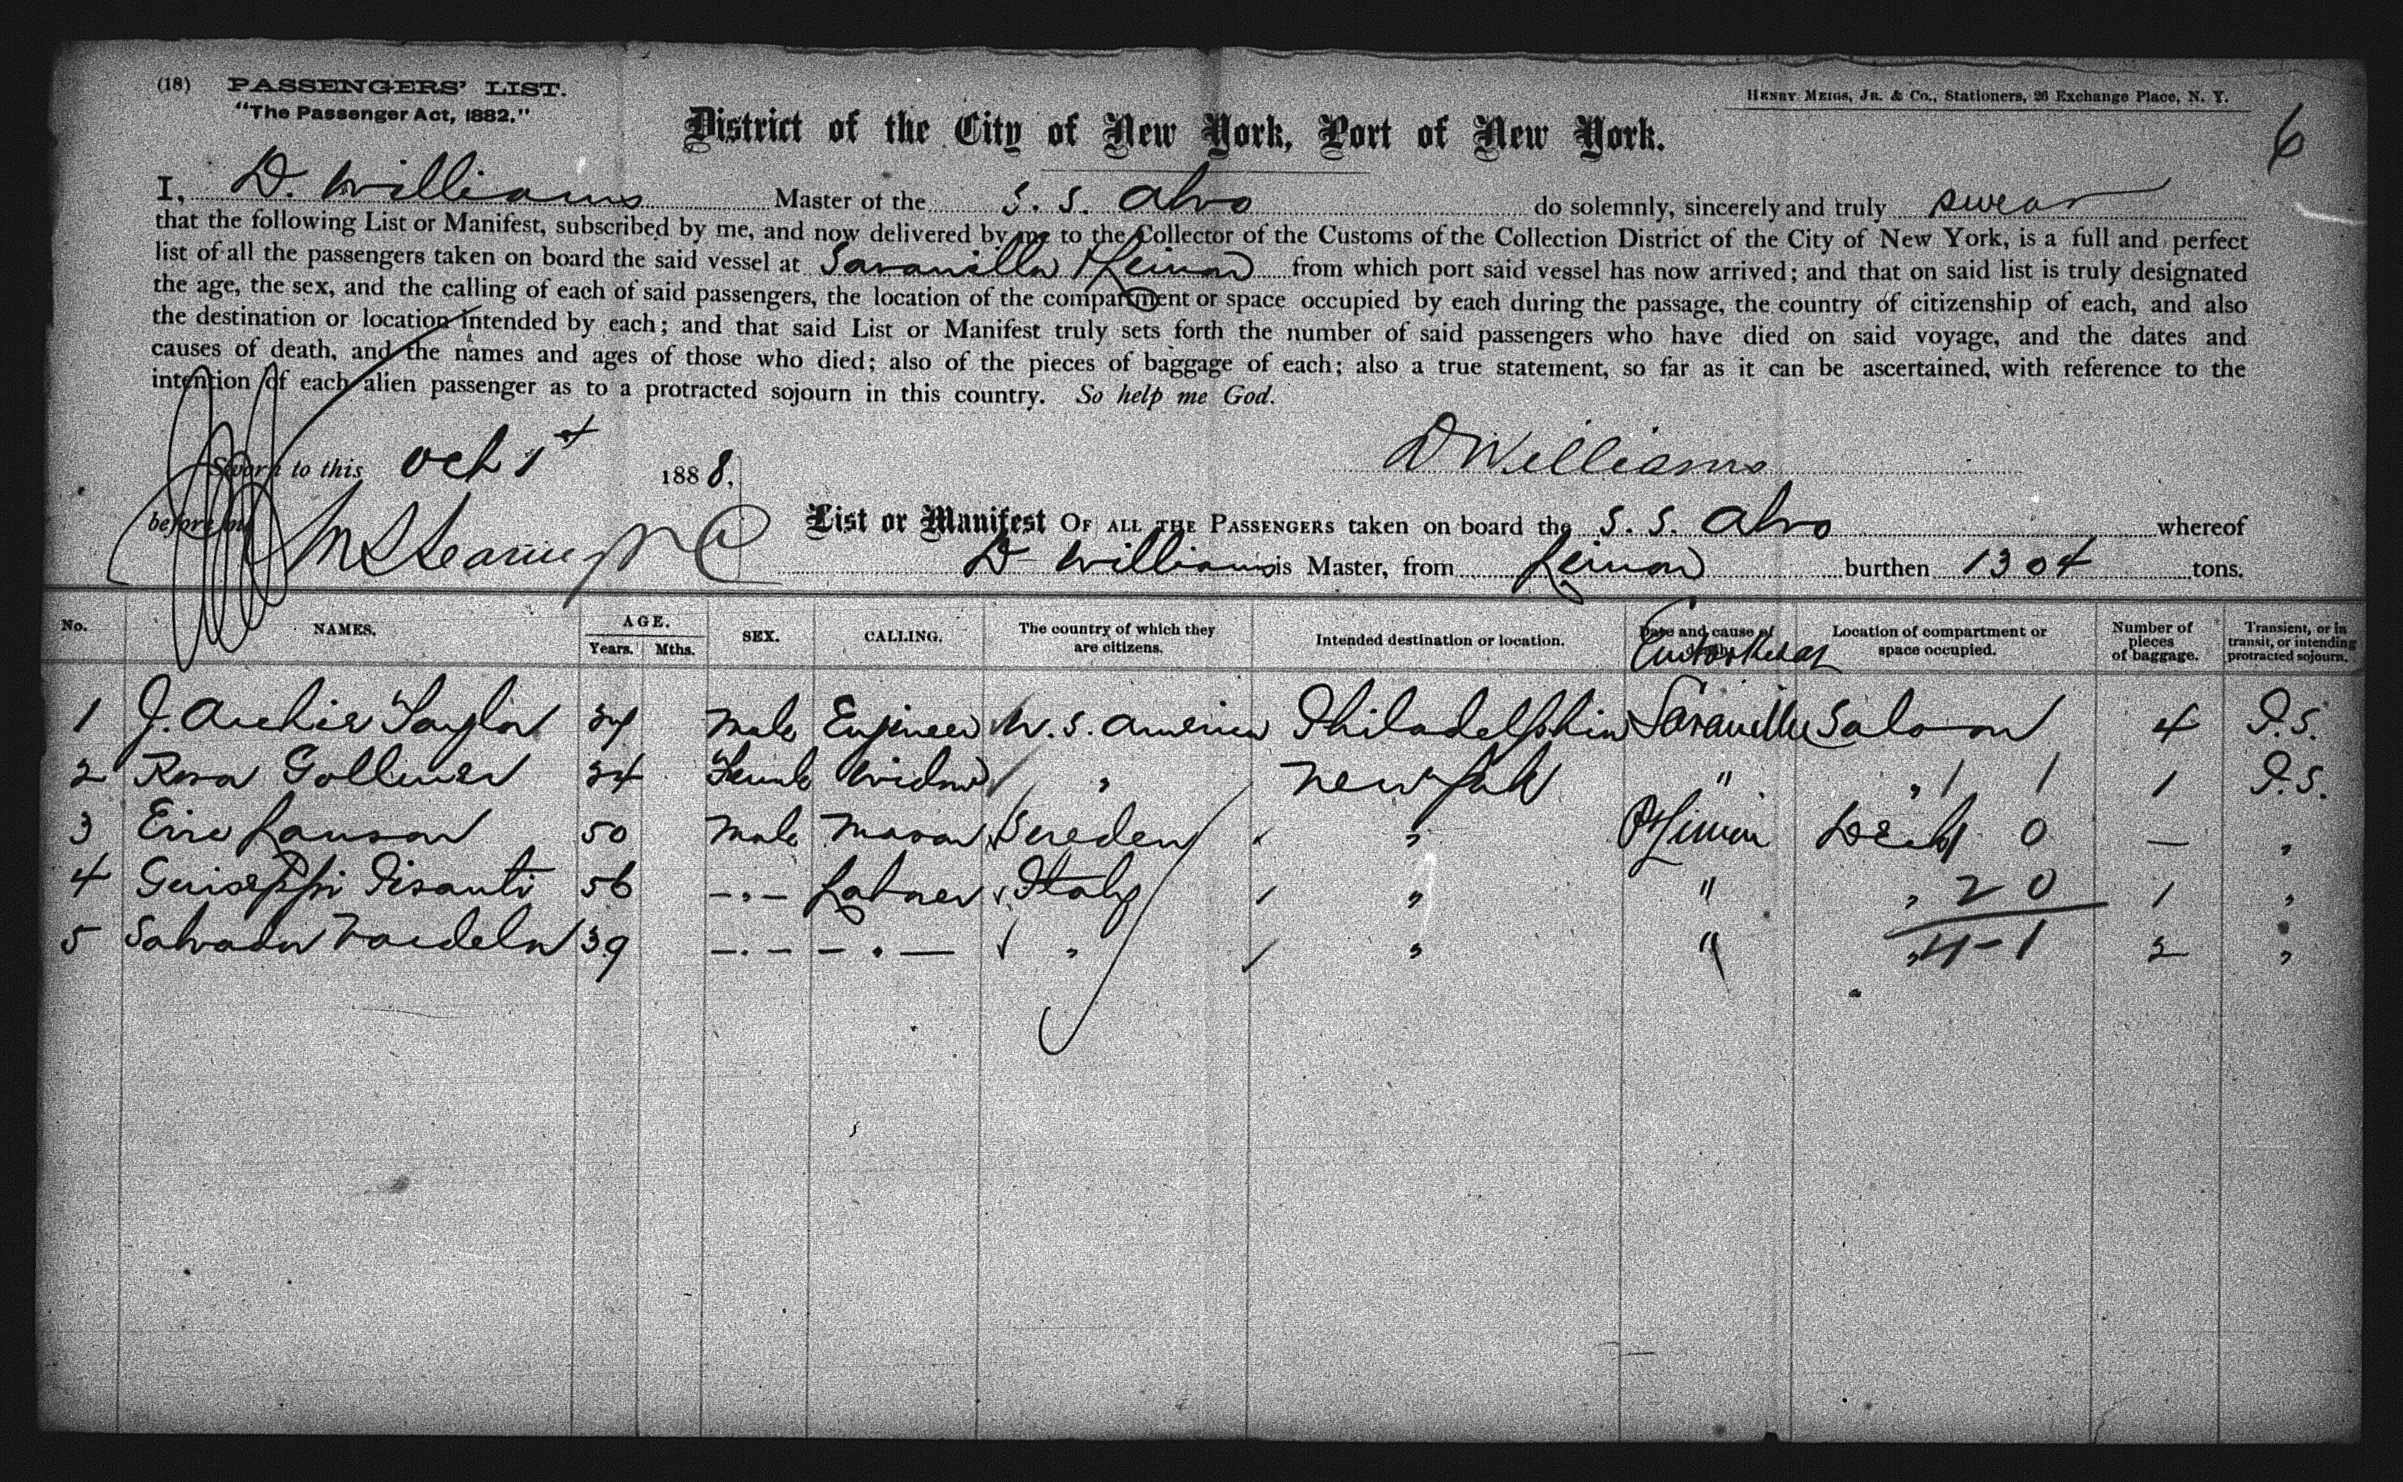 (18) PASSENGERS' LIST.
"The Passenger Act, 1882."
HENRY MEIGS, JR. & CO., Stationers, 26 Exchange Place, N. Y.
6
District of the City of New York, Port of New York.
I, D. Williams Master of the S. S. Alvo do solemnly, sincerely and truly swear
that the following List or Manifest, subscribed by me, and now delivered by me to the Collector of the Customs of the Collection District of the City of New York, is a full and perfect
list of all the passengers taken on board the said vessel at Savanilla & Limon from which port said vessel has now arrived; and that on said list is truly designated
the age, the sex, and the calling of each of said passengers, the location of the compartment or space occupied by each during the passage, the country of citizenship of each, and also
the destination or location intended by each; and that said List or Manifest truly sets forth the number of said passengers who have died on said voyage, and the dates and
causes of death, and the names and ages of those who died; also of the pieces of baggage of each; also a true statement, so far as it can be ascertained, with reference to the
intention of each alien passenger as to a protracted sojourn in this country. So help me God.
Sworn to this Oct 1st 1888.
D Williams
before me
List or Manifest OF ALL THE PASSENGERS taken on board the S. S. Alvo whereof
D Williams is Master, from Limon burthen 1304 tons.
No. NAMES. AGE. Years. Mths. SEX. CALLING. The country of which they are citizens. Intended destination or location. Date and cause of Embarked at Location of compartment or space occupied. Number of pieces of baggage. Transient, or in transit, or intending protracted sojourn.
1 J. Archie Taylor 34 Male Engineer U. S. America Philadelphia Savanilla Saloon 4 P.S.
2 Rosa 34 Female Widow " New York " " 1 1 1 P.S.
3 Eric 50 Male Mason Sweden " Pt Limon Deck 1 0 — "
4 Guiseppi Pisanti 56 -.- Labourer Italy " " " 2 0 1 "
5 Salvador 39 -.- - . - " " " " 4-1 2 "